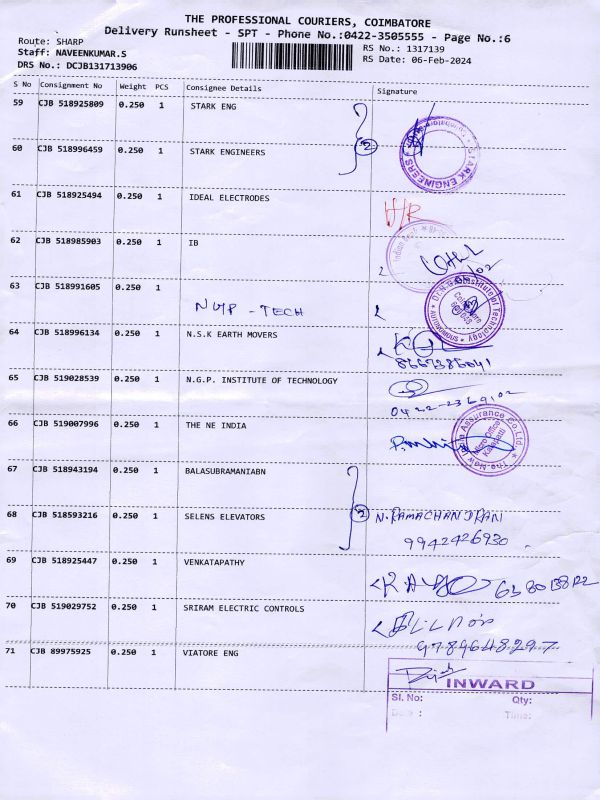 THE PROFESSIONAL COURIERS, COIMBATORE
Delivery Runsheet - SPT - Phone No.:0422-3505555 - Page No.:6
Route: SHARP
RS No.: 1317139
Staff: NAVEENKUMAR.S
RS Date: 06-Feb-2024
DRS No.: DCJB131713906
S No Consignment No Weight PCS Consignee Details Signature
59 CJB 518925809 0.250 1 STARK ENG
60 CJB 518996459 0.250 1 STARK ENGINEERS
2
STARK ENGINEERS
61 CJB 518925494 0.250 1 IDEAL ELECTRODES
62 CJB 518985903 0.250 1 IB
63 CJB 518991605 0.250 1
NUP - TECH
64 CJB 518996134 0.250 1 N.S.K EARTH MOVERS
65 CJB 519028539 0.250 1 N.G.P. INSTITUTE OF TECHNOLOGY
66 CJB 519007996 0.250 1 THE NE INDIA
67 CJB 518943194 0.250 1 BALASUBRAMANIABN
68 CJB 518593216 0.250 1 SELENS ELEVATORS
2
N.RAMACHANDRAN
9942426930
69 CJB 518925447 0.250 1 VENKATAPATHY
70 CJB 519029752 0.250 1 SRIRAM ELECTRIC CONTROLS
9789648297
71 CJB 89975925 0.250 1 VIATORE ENG
INWARD
Sl. No: Qty:
Date : Time: